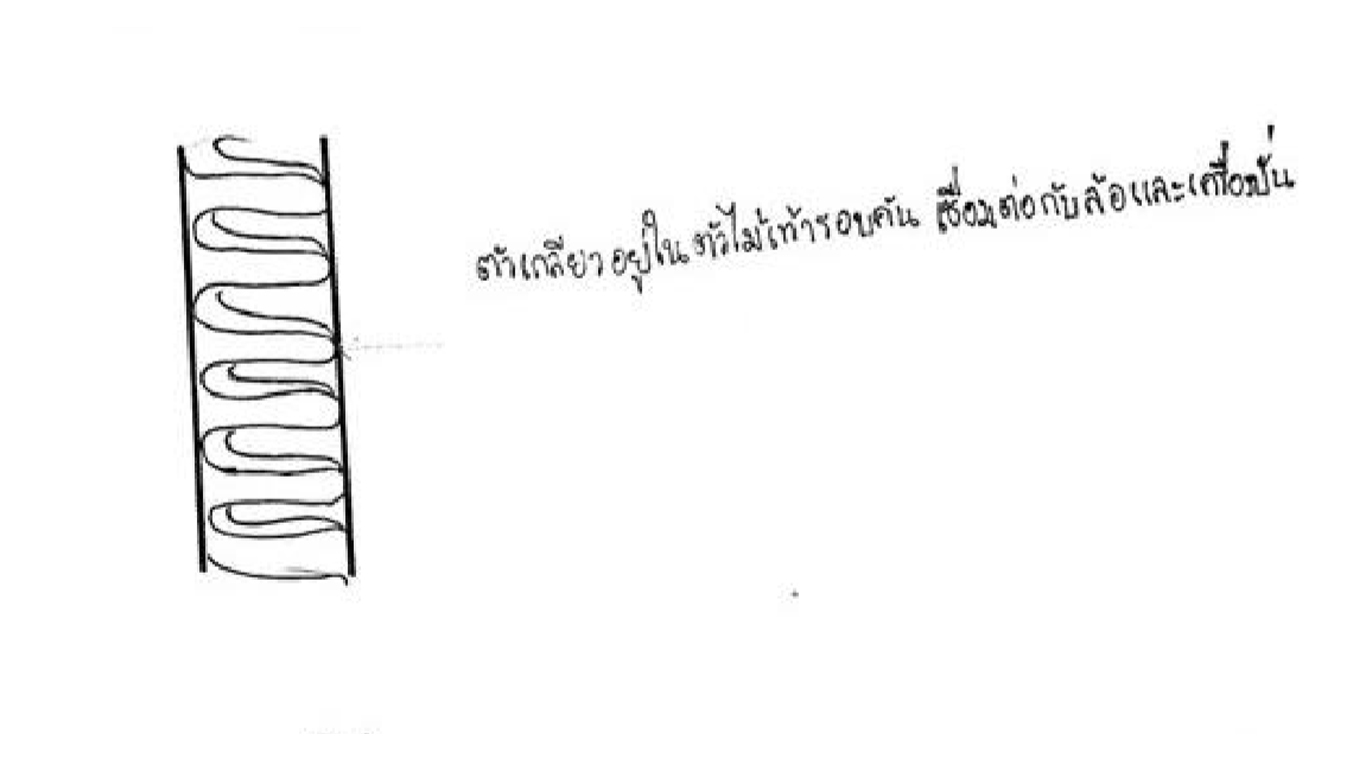 ตัวเกลียวอยู่ในตัวไม้เท้ารอบคัน เชื่อมต่อกับล้อและเครื่องปั่น